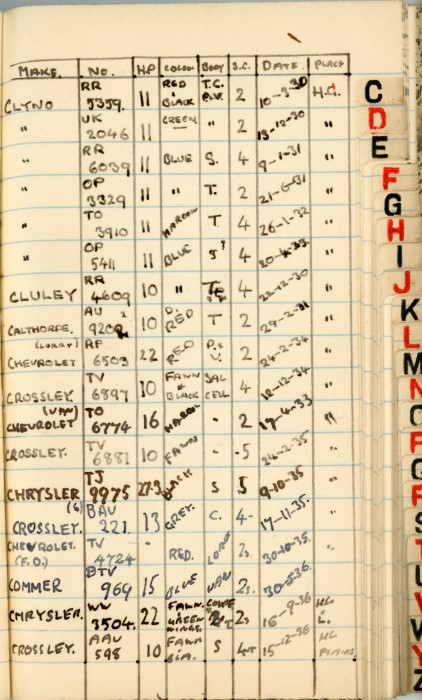 MAKE. NO. H.P COLOUR BODY S.C. DATE. PLACE
CLYNO RR 5359. 11 RED & BLACK T.C. 2 10-3-30 H.G.
" UK 2046 11 GREEN " 2 13-12-30 "
" RR 6039 11 BLUE S. 4 9-1-31 "
" OP 3329 11 " T. 2 21-6-31 "
" TO 3910 11 MAROON T 4 26-1-32 "
" OP 5411 11 BLUE S? 4 "
CLULEY RR 4609 10 " 4 22-12-30 "
CALTHORPE. AU 920 10 D. RED T 2 "
(LORRY) CHEVROLET RP 6503 22 RED 2 24-2-34 "
CROSSLEY. TV 6897 10 FAWN & BLACK SAL CELL 4 12-12-34 "
(VAN) CHEVROLET TO 6774 16 MAROON " 2 19-4-33 "
CROSSLEY. TV 6881 10 FAWN " 5 24-2-35 "
CHRYSLER TJ 9975 27-3 BLACK S 5 9-10-35 "
(6) CROSSLEY. BAU 221. 13 GREY. C. 4- 17-11-35. "
CHEVROLET. (F.O.) TV 4724 - RED. LORRY 2s 30-10-35. "
COMMER BTV 969 15 BLUE VAN 2s. 30-5-36. "
CHRYSLER. WW 3504. 22 FAWN. GREEN WINGS. COUPE 2s 16-9-36 HL
CROSSLEY. AAU 598 10 FAWN BLA. S 15-12-36 HL PLAINS
C
D
E
F
G
H
I
J
K
L
M
N
O
P
Q
R
S
T
U
V
W
Y
Z